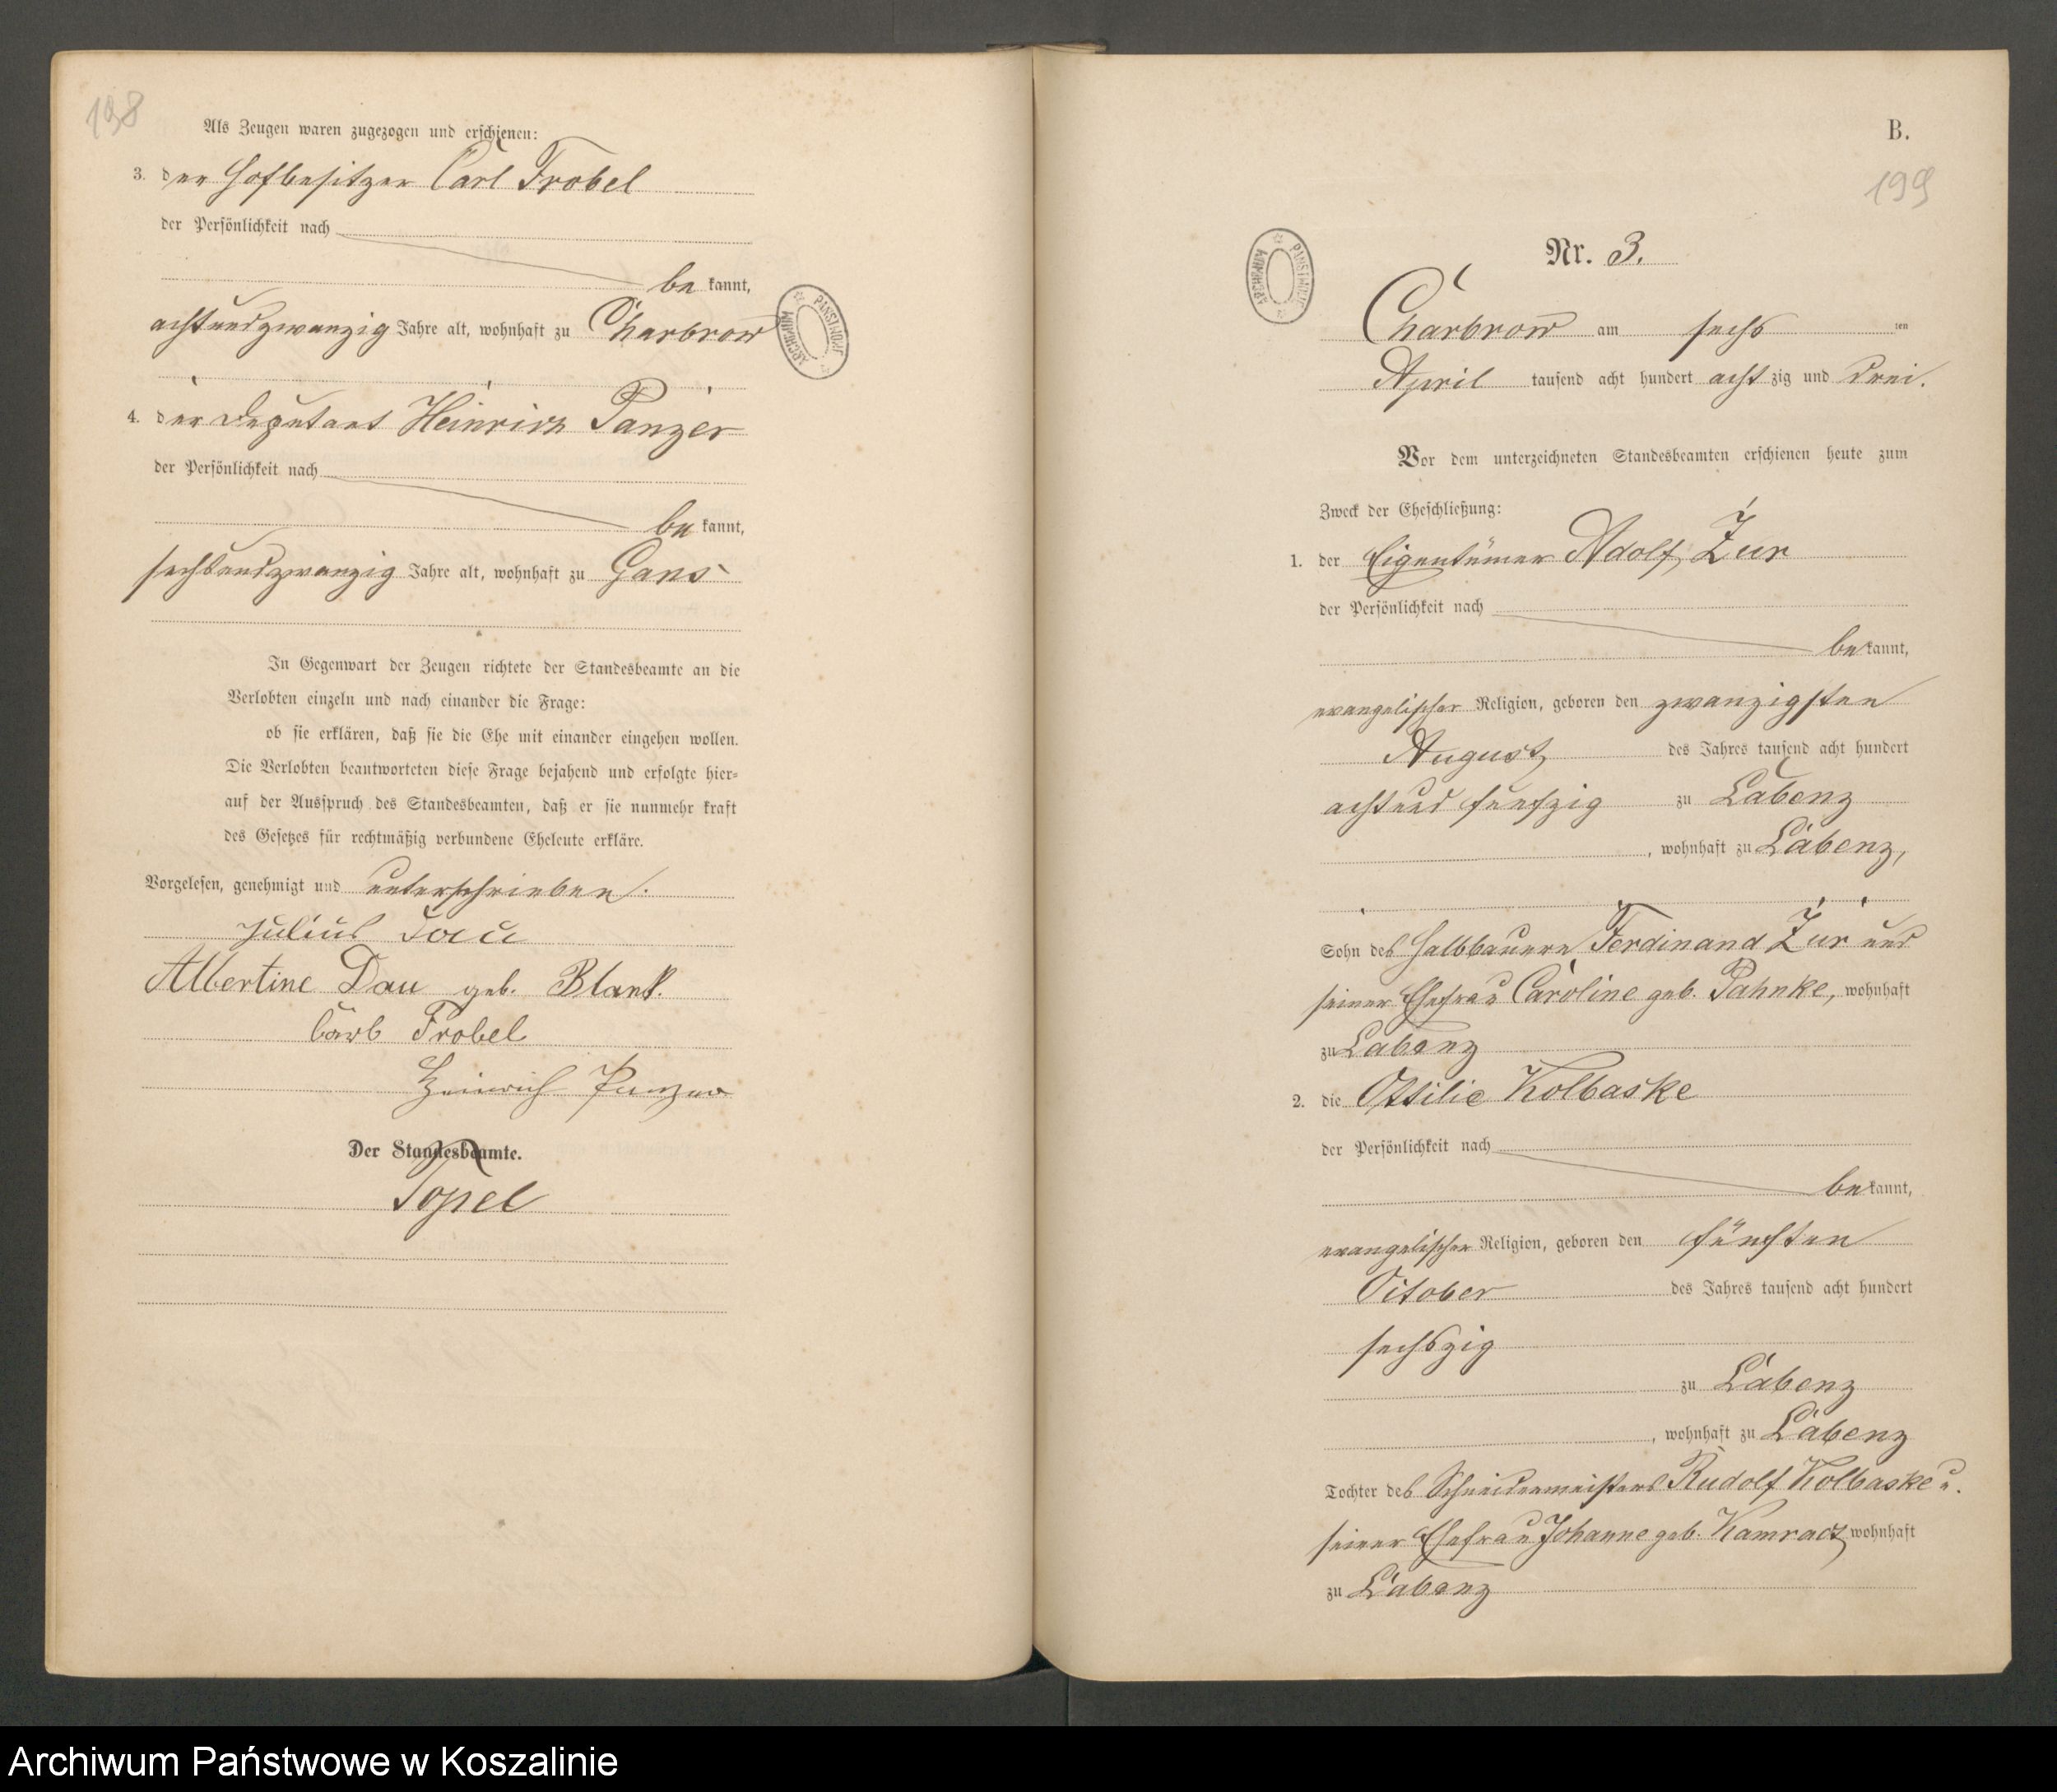 198
Als Zeugen waren zugezogen und erschienen:
3. der Hofbesitzer Carl Frobel
der Persönlichkeit nach
be kannt,
achtundzwanzig Jahre alt, wohnhaft zu Charbrow
4. der Deputant Heinrich Panzer
der Persönlichkeit nach
be kannt,
sechsundzwanzig Jahre alt, wohnhaft zu Gans
In Gegenwart der Zeugen richtete der Standesbeamte an die
Verlobten einzeln und nach einander die Frage:
ob sie erklären, daß sie die Ehe mit einander eingehen wollen.
Die Verlobten beantworteten diese Frage bejahend und erfolgte hier-
auf der Ausspruch des Standesbeamten, daß er sie nunmehr kraft
des Gesetzes für rechtmäßig verbundene Eheleute erkläre.
Vorgelesen, genehmigt und unterschrieben.
Julius Dau
Albertine Dau geb. Blank.
Carl Frobel
Heinrich Panzer
Der Standesbeamte.
Topel
ARCHIWUM PAŃSTWOWE
B.
199
ARCHIWUM PAŃSTWOWE
Nr. 3.
Charbrow am sechs ten
April tausend acht hundert acht zig und drei.
Vor dem unterzeichneten Standesbeamten erschienen heute zum
Zweck der Eheschließung:
1. der Eigentümer Adolf Zur
der Persönlichkeit nach
be kannt,
evangelischer Religion, geboren den zwanzigsten
August des Jahres tausend acht hundert
achtund fünfzig zu Labenz
, wohnhaft zu Labenz,
Sohn des Halbbauern Ferdinand Zur und
seiner Ehefrau Caroline geb. Pahnke, wohnhaft
zu Labenz
2. die Ottilie Kolbaske
der Persönlichkeit nach
be kannt,
evangelischer Religion, geboren den fünften
October des Jahres tausend acht hundert
sechszig
zu Labenz
, wohnhaft zu Labenz
Tochter des Schneidermeisters Rudolf Kolbaske u.
seiner Ehefrau Johanne geb. Kamratz wohnhaft
zu Labenz
Archiwum Państwowe w Koszalinie